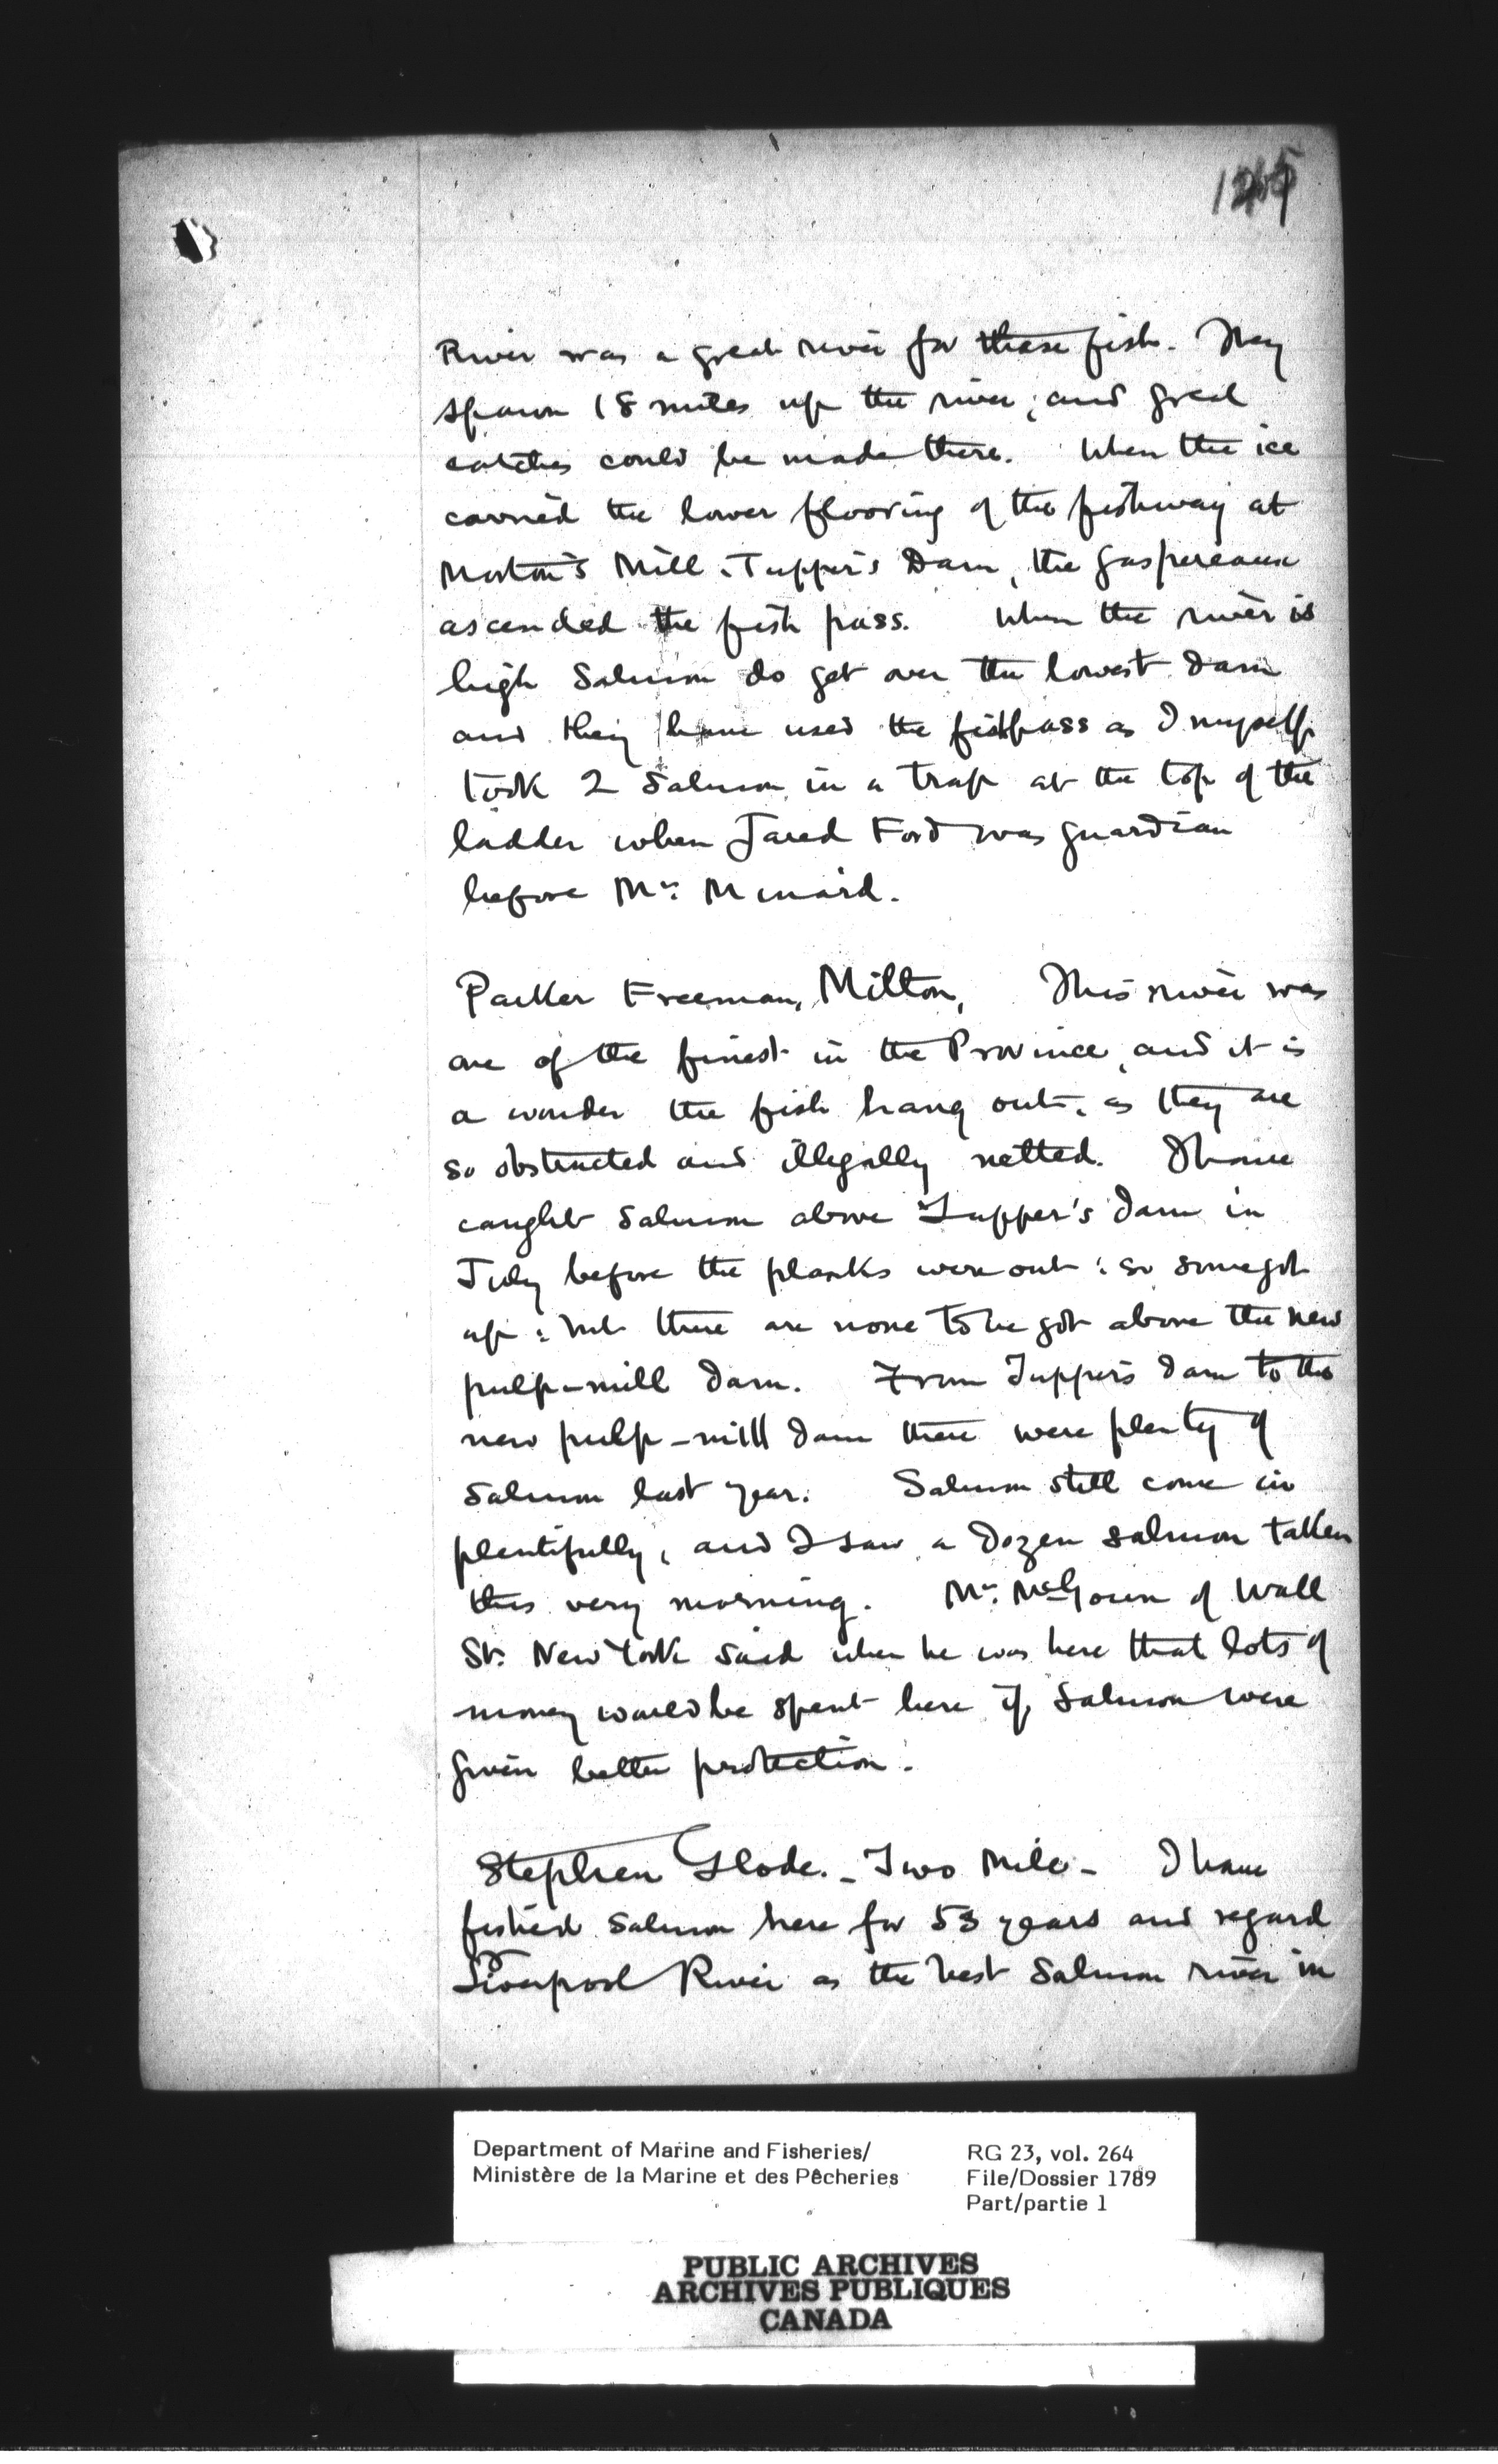 River was a great river for these fish. They
spawn 18 miles up the river; and great
catches could be made there. When the ice
carried the lower flooring of the fishway at
Morton's Mill, Tupper's Dam, the gaspereaux
ascended the fish pass. When the river is
high Salmon do get over the lowest dam
and they have used the fishpass as I myself
took 2 Salmon in a trap at the top of the
ladder when Jared Ford was guardian
before Mr. Minard.
Parker Freeman, Milton, This river was
one of the finest in the Province, and it is
a wonder the fish hang out, as they are
so obstructed and illegally netted. I have
caught Salmon above Tupper's dam in
July before the planks were out: so some got
up: but there are none to be got above the new
pulp-mill dam. From Tupper's dam to the
new pulp-mill dam there were plenty of
Salmon last year. Salmon still come in
plentifully, and I saw a dozen salmon taken
this very morning. Mr. McGown of Wall
St. New York said when he was here that lots of
money would be spent here if Salmon were
given better protection.
Stephen Glode. - Two Mile - I have
fished Salmon here for 53 years and regard
Liverpool River as the best Salmon river in
Department of Marine and Fisheries/ RG 23, vol. 264
Ministère de la Marine et des Pêcheries File/Dossier 1789
Part/partie 1
PUBLIC ARCHIVES
ARCHIVES PUBLIQUES
CANADA